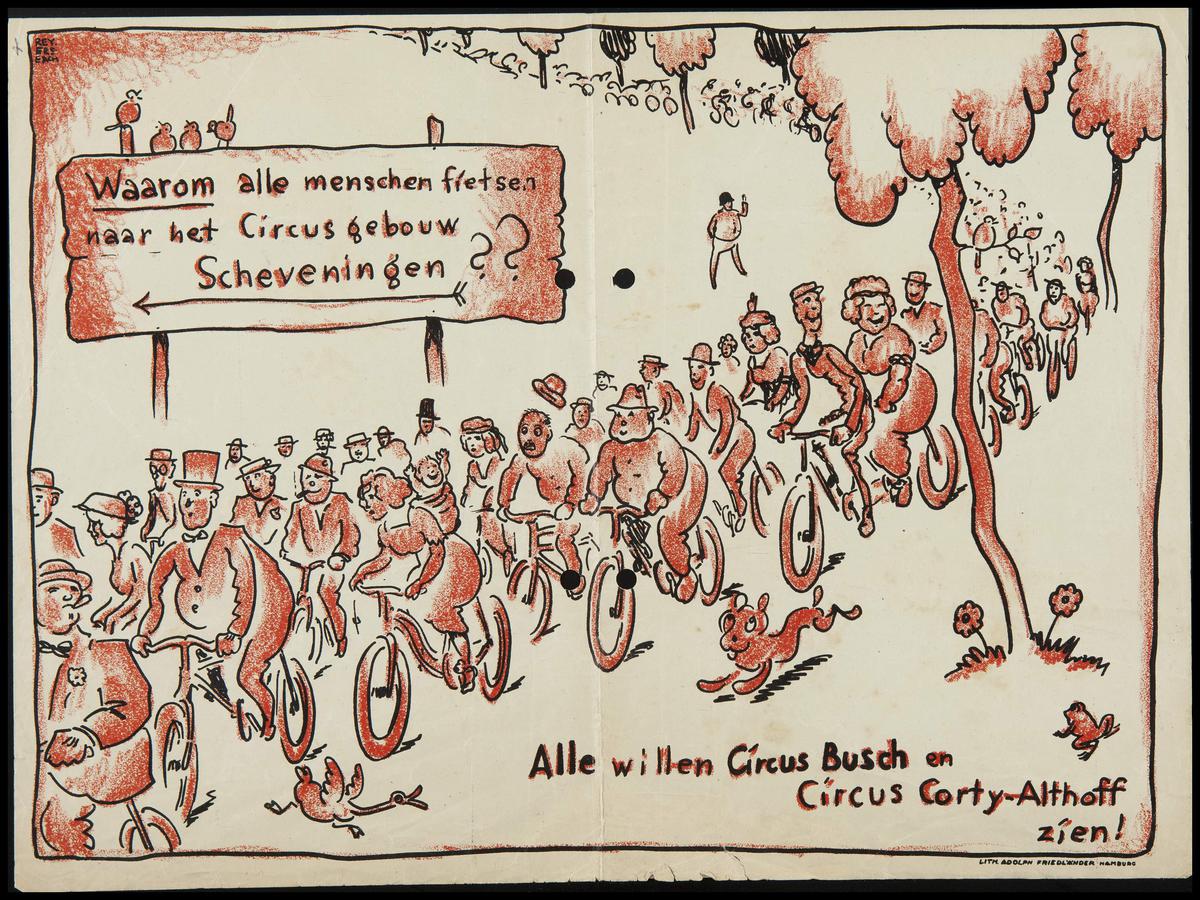 Waarom alle menschen fietsen
naar het Circus gebouw
Scheveningen ??
Alle willen Circus Busch en
Circus Corty-Althoff
zien!
LITH. ADOLPH FRIEDLÄNDER HAMBURG